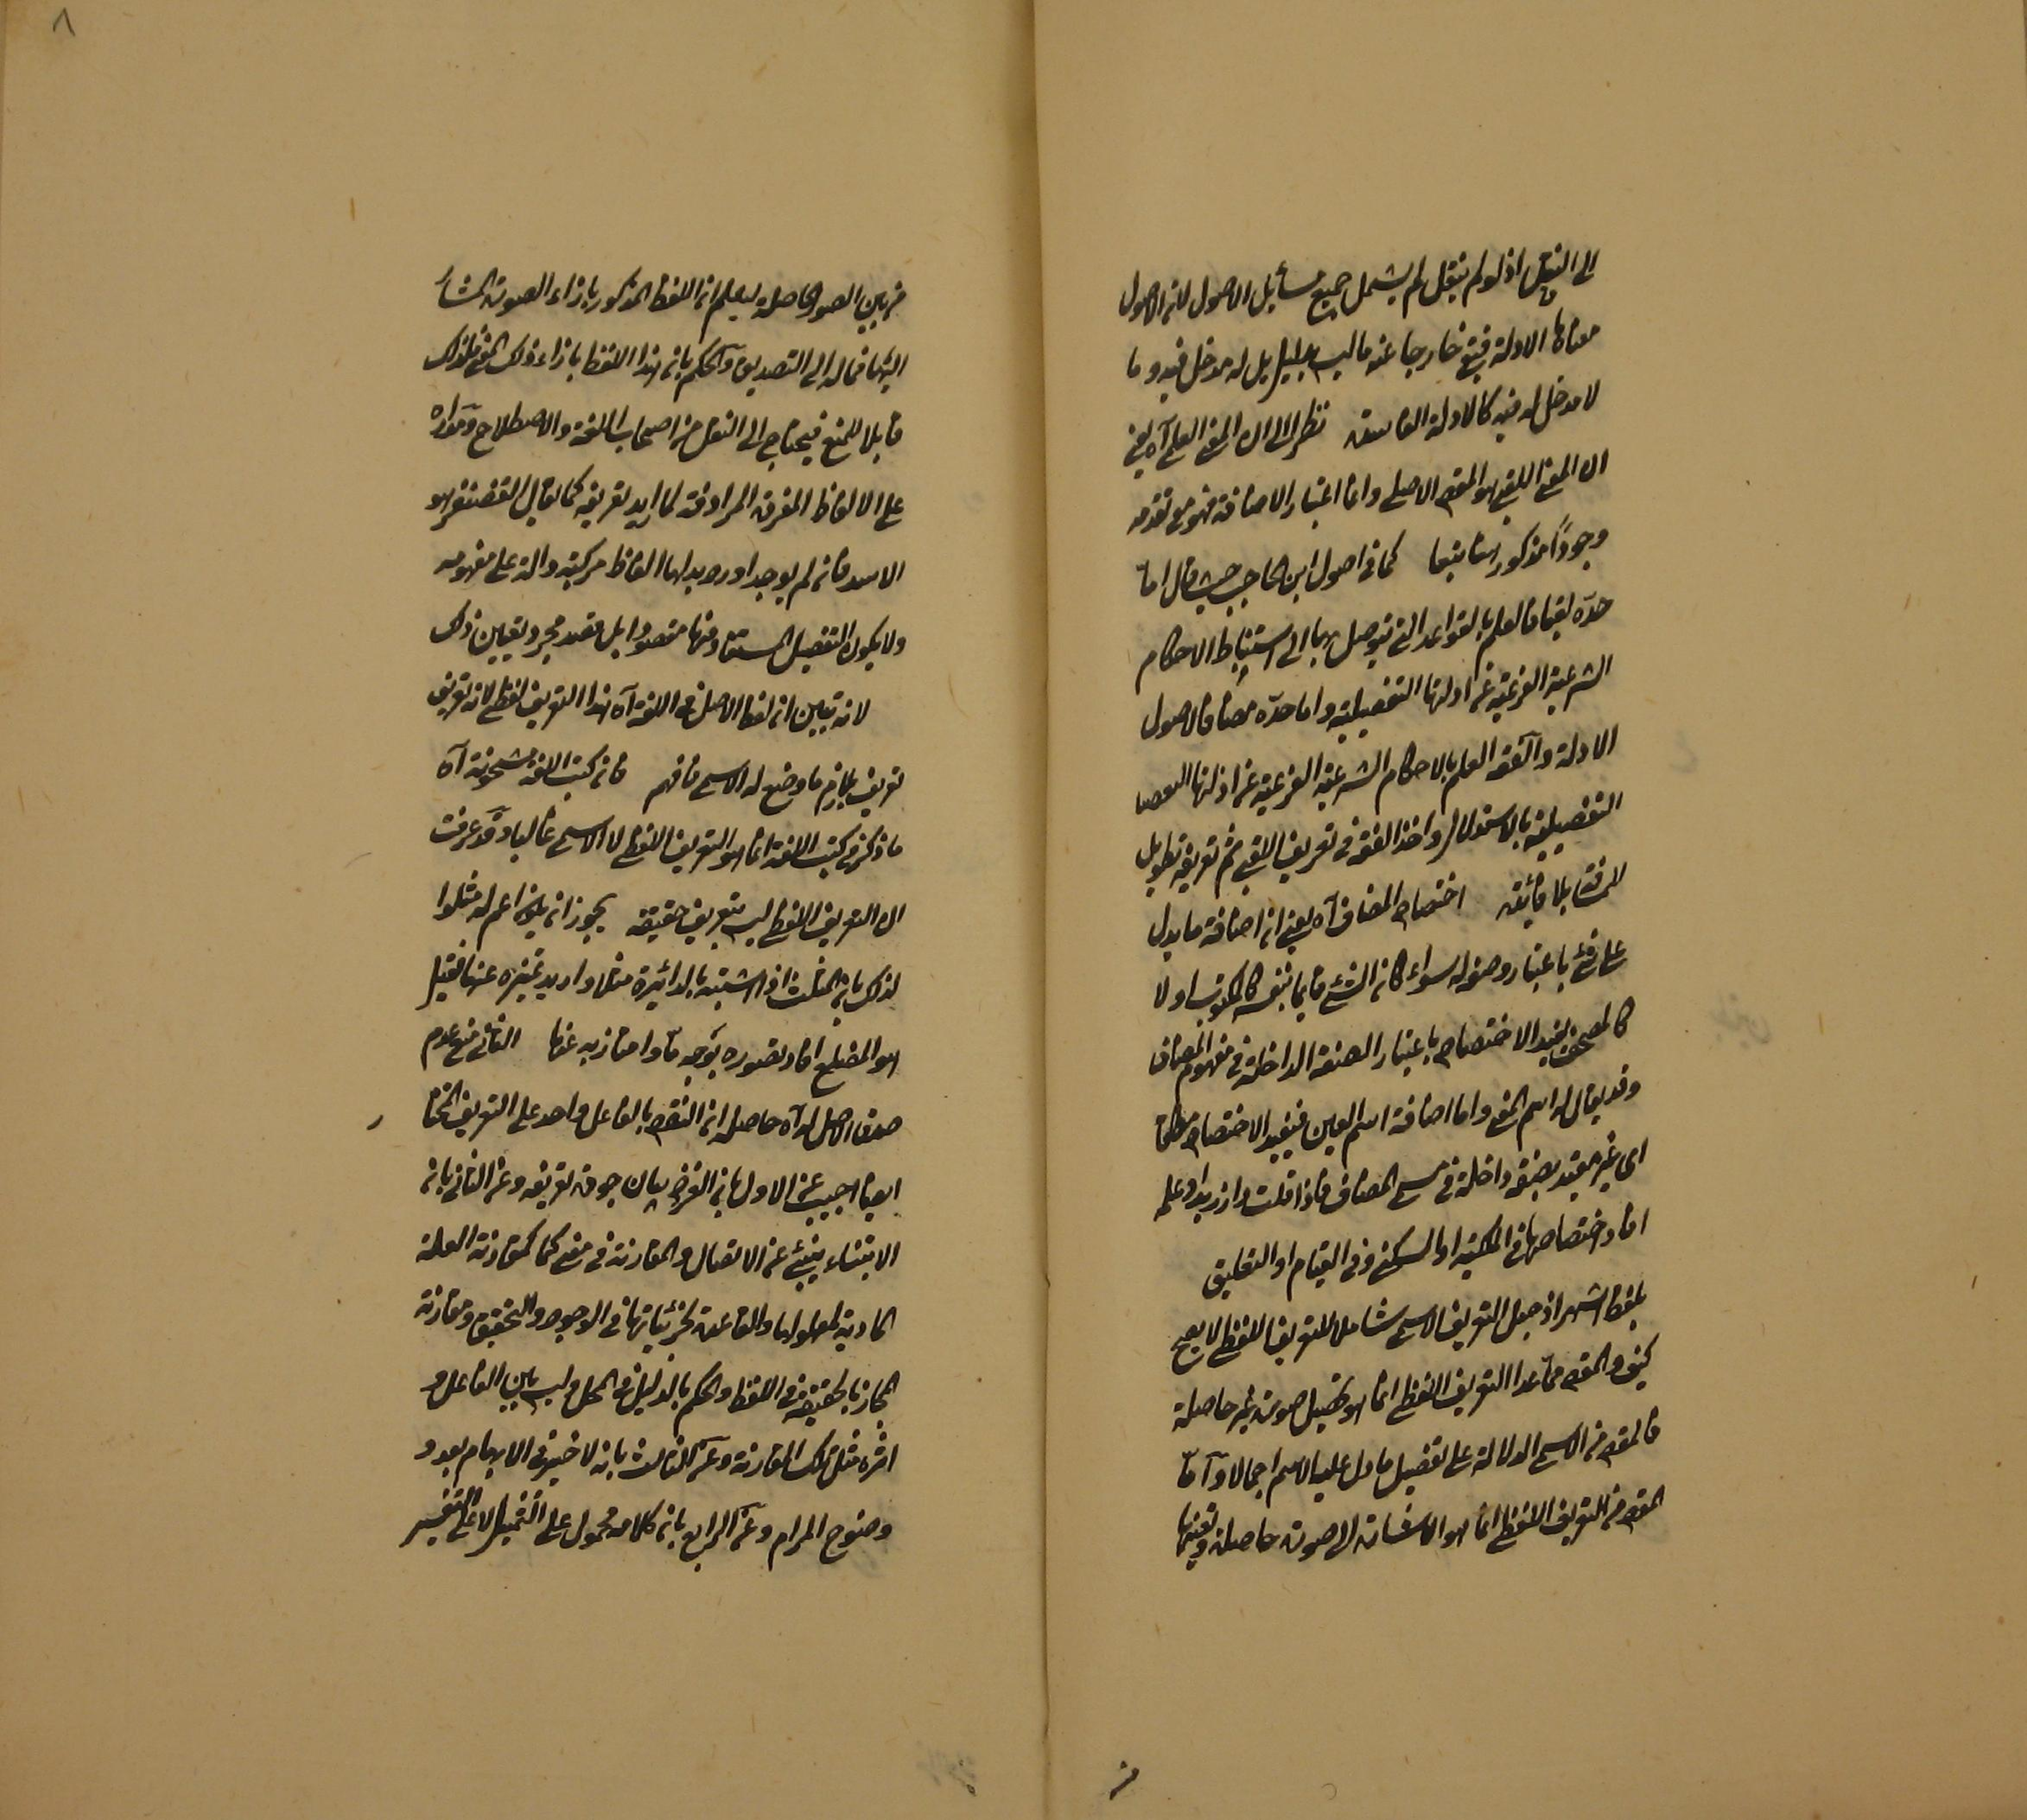 الى النقل اذ لو لم ينقل لم يشمل جميع مسائل الاصول لان الاصول
معناها الادلة فيبقى خارجا عنه ما ليس بدليل بل له مدخل فيه وما
لا مدخل له فيه كالادلة الفاسدة نظرا الى ان المعنى العلمى آه يعنى
ان المعنى اللقبى هو المقصود الاصلى واما اعتبار الاضافة فهو مع تقدمه
وجودا مذكور استتباعا كما فى اصول ابن الحاجب حيث قال اما
حدّه لقبا فالعلم بالقواعد التى يتوصل بها الى استنباط الاحكام
الشرعية الفرعية عن ادلتها التفصيلية واما حدّه مضافا فالاصول
الادلة والفقه العلم بالاحكام الشرعية الفرعية عن ادلتها
التفصيلية بالاستدلال واخذ الفقه فى تعريف اللقبى ثم تعريفه تطويل
للمسافة بلا فائدة اختصاص المضاف آه يعنى ان اضافة ما يدل
على شئ باعتبار وصف له سواء كان الشئ قائما بنفسه كالمكتوب او لا
يفيد الاختصاص باعتبار الصفة الداخلة فى مفهوم المضاف
وقد يقال له اسم المعنى واما اضافة اسم العين فيفيد الاختصاص مطلقا
اى غير مقيد بصفة داخلة فى مسمى المضاف فاذا قلت دار زيد او علمه
افاد اختصاصها فى الملكية او السكنى وفى القيام او التعليق
بلفظ اشهر اذ جعل التعريف الاسمى شاملا للتعريف اللفظى لا يصح
كيف والمقصود مما عدا التعريف اللفظى انما هو تحصيل صورة غير حاصلة
فالمقصود من الاسمى الدلالة على تفصيل ما دل عليه الاسم اجمالا واما
المقصود من التعريف اللفظى انما هو الاشارة الى صورة حاصلة وتعينها
من
٨
من بين الصور الحاصلة ليعلم ان اللفظ المذكور بازاء الصورة المشار
اليها فماله الى التصديق والحكم بان هذا اللفظ بازاء ذلك المعنى فلذلك
قابلا للمنع فيحتاج الى النقل من اصحاب اللغة والاصطلاح ومداره
على الالفاظ المفردة المرادفة لما اريد تعريفه كما يقال الغضنفر هو
الاسد فان لم يوجد اورد بدلها الفاظ مركبة دالة على مفهومه
ولا يكون التفصيل المستفاد منها مقصودا بل قصد مجرد تعيين ذلك
لانه تبيين ان لفظ الاصل فى اللغة آه هذا التعريف لفظى لانه تعريف
تعريف بلازم ما وضع له الاسم فافهم فان كتب اللغة مشحونة آه
ما ذكر فى كتب اللغة انما هو التعريف اللفظى لا الاسمى غالبا وقد عرفت
ان التعريف اللفظى ليس بتعريف حقيقة يجوز ان يكون اعم له مثلوا
لذلك بان المثلث اذا اشتبه بالدائرة مثلا واريد تميزه عنها فقيل
هو المضلع افاد تصوره بوجه ما وامتاز به عنها الثانى منع عدم
صدق الاصل له آه حاصله ان النقض بالفاعل واحد على التعريف
ايضا اجيب عن الاول بان الغرض بيان جودة تعريفه وعن الثانى بان
الابتناء ينبئ عن الاتصال والمقارنة فى معنى كما كمقارنة العلة
المادية لمعلولها والقاعدة لجزئياتها فى الوجود والتحقيق ومقارنة
المجاز بالحقيقة فى اللفظ والحكم بالدليل فى المحل وليس بين الفاعل و
اثره مثل تلك المقارنة وعن الثالث بانه لا خير فى الابهام بعد و
وضوح المرام وعن الرابع بان كلامه محمول على التمثيل لا على التفسير